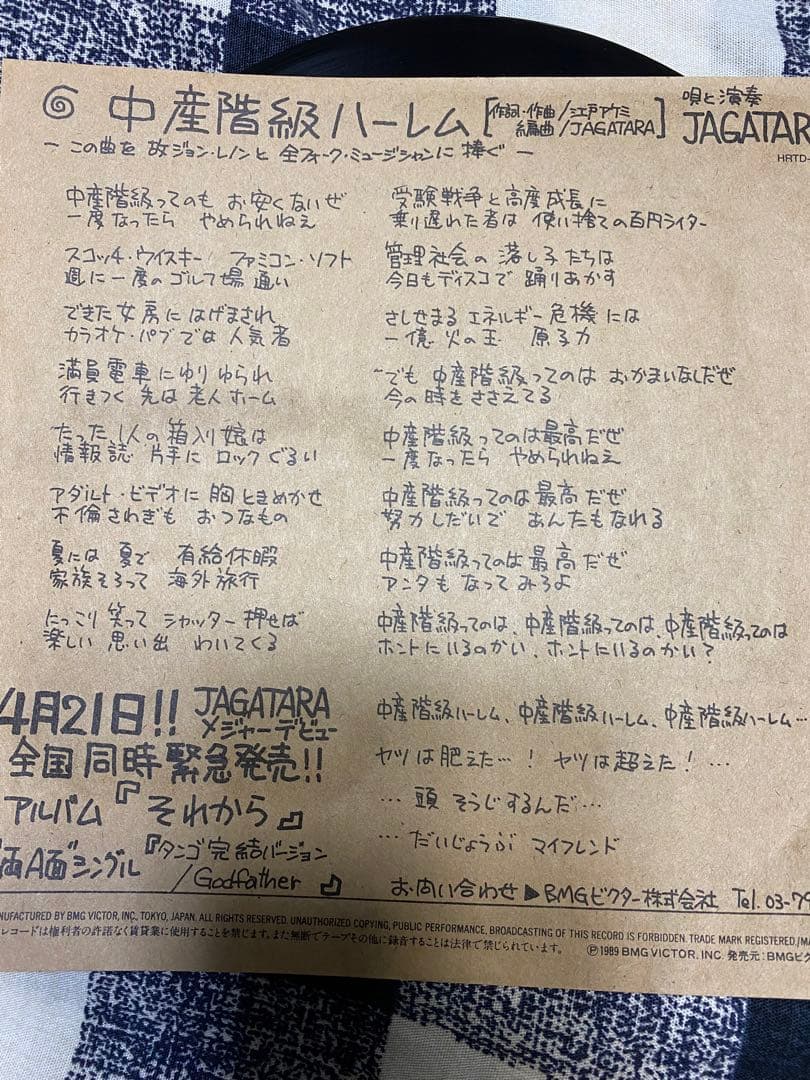 中産階級ハーレム [作詞・作曲/江戸アケミ 編曲/JAGATARA] 唄と演奏 JAGATAR
HRTD-
ー この曲を 故ジョン・レノンと 全フォーク・ミュージシャンに 捧ぐ ー
中産階級ってのも お安くないぜ
一度なったら やめられねえ
スコッチ・ウイスキー ファミコン・ソフト
週に一度のゴルフ場 通い
できた女房に はげまされ
カラオケ・パブでは 人気者
満員電車に ゆり ゆられ
行きつく 先は 老人ホーム
たった、1人の 箱入り娘は
情報誌 片手に ロックぐるい
アダルト・ビデオに 胸ときめかせ
不倫さわぎも おつなもの
夏には 夏で 有給休暇
家族そろって 海外旅行
にっこり 笑って シャッター 押せば
楽しい 思い出 わいてくる
受験戦争と高度成長に
乗り遅れた者は 使い捨ての百円ライター
管理社会の 落し子たちは
今日もディスコで 踊りあかす
さしせまる エネルギー危機には
一億 火の玉 原子力
でも 中産階級ってのは おかまいなしだぜ
今の時を ささえてる
中産階級ってのは最高だぜ
一度なったら やめられねえ
中産階級ってのは 最高だぜ
努力しだいで あんたもなれる
中産階級ってのは 最高だぜ
アンタも なって みろよ
中産階級ってのは、中産階級ってのは、中産階級ってのは
ホントにいるのかい、ホントにいるのかい?
中産階級ハーレム、中産階級ハーレム、中産階級ハーレム…
ヤツは肥えた…! ヤツは超えた!…
…頭 そうじするんだ…
…だいじょうぶ マイフレンド
4月21日!! JAGATARA メジャーデビュー
全国同時緊急発売!!
アルバム『それから』
両A面"シングル『タンゴ完結バージョン
/Godfather』
お問い合わせ▶BMGビクター株式会社 Tel.03-79
NUFACTURED BY BMG VICTOR, INC., TOKYO, JAPAN. ALL RIGHTS RESERVED. UNAUTHORIZED COPYING, PUBLIC PERFORMANCE, BROADCASTING OF THIS RECORD IS FORBIDDEN. TRADE MARK REGISTERED./MA
レコードは権利者の許諾なく賃貸業に使用することを禁じます。また無断でテープその他に録音することは法律で禁じられています。
Ⓟ1989 BMG VICTOR, INC. 発売元:BMGビク